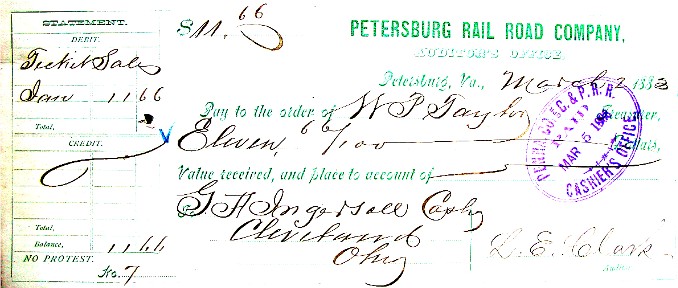 STATEMENT.
DEBIT.
Ticket Sales
Jan 11 66
Total,
CREDIT.
Total,
Balance, 11 66
NO PROTEST.
No. 7
$11.66
PETERSBURG RAIL ROAD COMPANY,
AUDITOR'S OFFICE,
Petersburg, Va., March 2 1883
Pay to the order of W P Taylor Treasurer,
Eleven, 66/100 Dollars,
Value received, and place to account of
G H Ingersoll
Cleveland
Ohio
L. E. Clark
MAR 5
CASHIER'S OFFICE